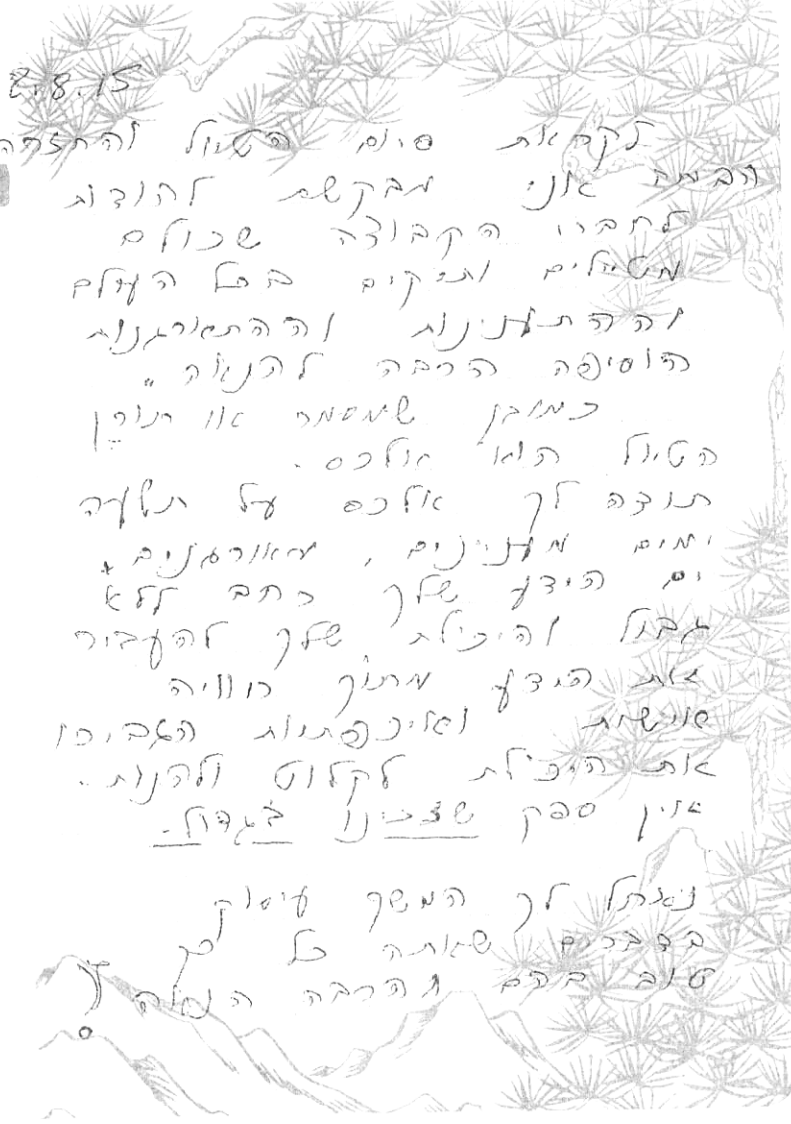 2.8.15
לקראת סיום הטיול והחזרה
הביתה אני מבקשת להודות
לחברי הקבוצה שכולם
מטיילים ותיקים בכל העולם
וההתענינות וההתארגנות
הוסיפה הרבה להנאה.
כמובן
הטיול הוא אלכס.
תודה לך אלכס על תשעה
ימים מענינים, מאורגנים,
ים הידע שלך רחב ללא
גבול והיכולת שלך להעביר
את הידע מתוך
אישית ואיכפתיות הגבירו
את היכולת לקלוט ולהנות.
אין ספק שזכינו בגדול.
נאחל לך המשך עיסוק
בדברים שאתה כל כך
טוב בהם והרבה הנאה